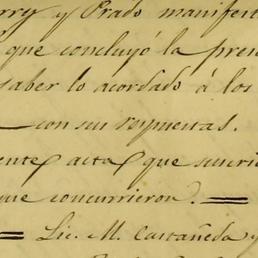 rry y Prado manifest
que concluyó la pren
saber lo acordado á los
con sus respuestas.
ente acta que suscri
que concurrieron.
Lic. M. Castañeda y